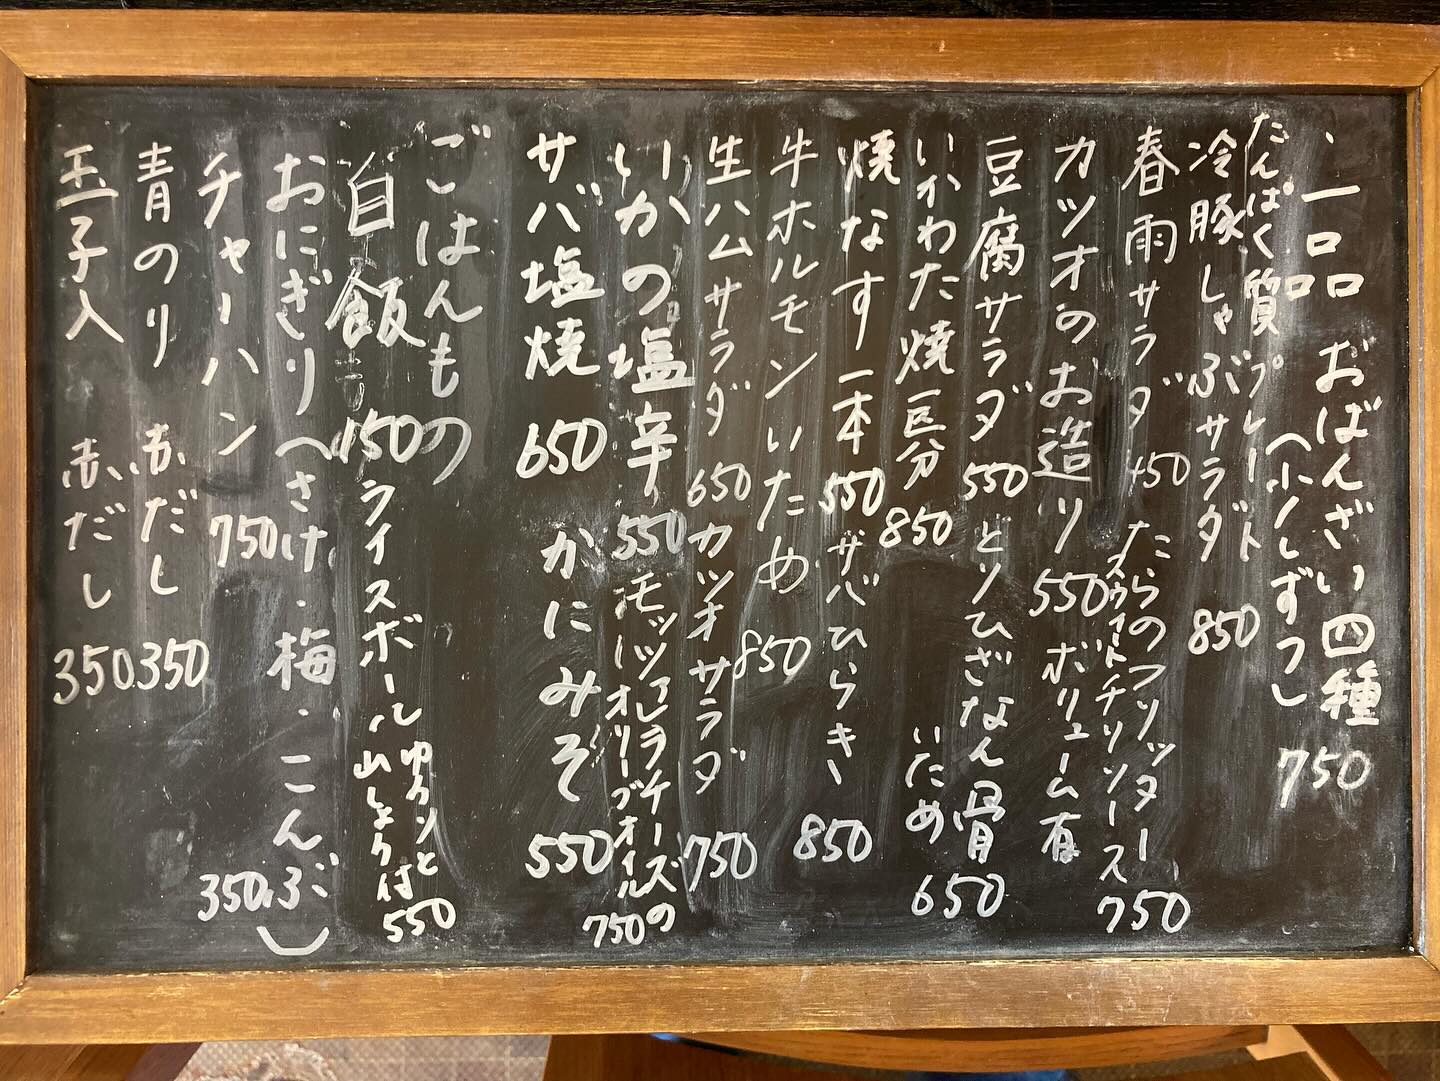 一品 おばんざい四種
(少しずつ) 750
たんぱく質プレート
冷豚しゃぶサラダ 850
春雨サラダ 450
たらのフリッター
スウィートチリソース 750
カツオのお造り 550
ボリューム有
豆腐サラダ 550
とりひざなん骨
いため 650
いかわた焼 850
焼なす 一本 550
サバひらき 850
牛ホルモンいため 850
生ハムサラダ 650
カツオサラダ 750
いかの塩辛 550
モッツァレラチーズの
オリーブオイル 750
サバ塩焼 650
かにみそ 550
ごはんもの
白飯 150
ライスボール
山しょうは 550
おにぎり(さけ・梅・こんぶ) 350
チャーハン 750
青のり 赤だし 350
玉子入 赤だし 350